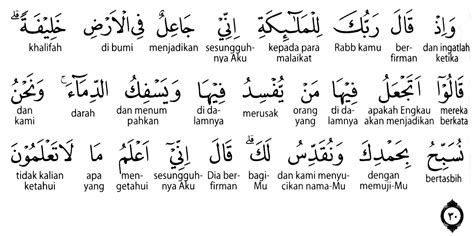 وَاِذْ قَالَ رَبُّكَ لِلْمَلٰۤىِٕكَةِ اِنِّيْ جَاعِلٌ فِى الْاَرْضِ خَلِيْفَةً ۗ
dan ingatlah ketika ber-firman Rabb kamu kepada para malaikat sesungguh-nya Aku menjadikan di bumi khalifah
قَالُوْٓا اَتَجْعَلُ فِيْهَا مَنْ يُّفْسِدُ فِيْهَا وَيَسْفِكُ الدِّمَاۤءَ ۚ وَنَحْنُ
mereka berkata apakah Engkau akan menjadikan di da-lamnya orang yang merusak di da-lamnya dan menum pahkan darah dan kami
نُسَبِّحُ بِحَمْدِكَ وَنُقَدِّسُ لَكَ ۗ قَالَ اِنِّيْٓ اَعْلَمُ مَا لَا تَعْلَمُوْنَ
bertasbih dengan memuji-Mu dan kami menyu-cikan nama-Mu bagi-Mu Dia ber-firman sesungguh-nya Aku men-getahui apa yang tidak kalian ketahui
٣٠